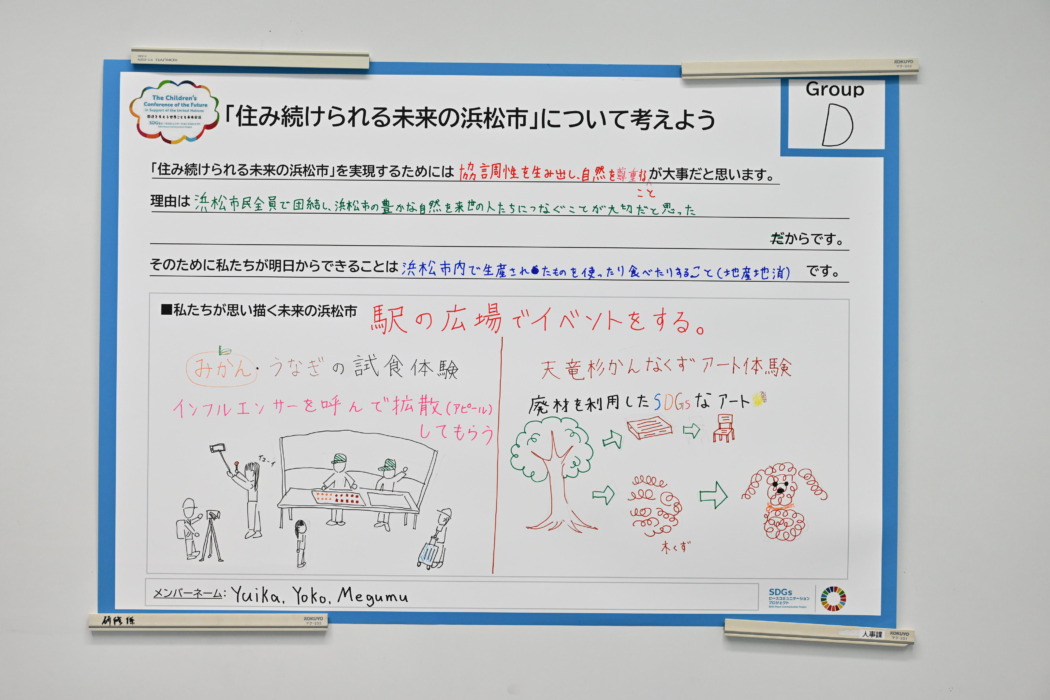 The Children's
Conference of the Future
in Support of the United Nations
「住み続けられる未来の浜松市」について考えよう
Group
D
「住み続けられる未来の浜松市」を実現するためには 協調周性を生み出し、自然を尊重することが大事だと思います。
理由は 浜松市民全員で団結し、浜松市の豊かな自然を来世の人たちにつなぐことが大切だと思った
だからです。
そのために私たちが明日からできることは 浜松市内で生産されたものを使ったり食べたりすること(地産地消) です。
■私たちが思い描く未来の浜松市 駅の広場でイベントをする。
みかん・うなぎの試食体験
インフルエンサーを呼んで拡散(アピール)
してもらう
イェーイ
天竜杉かんなくずアート体験
廃材を利用したSDGsなアート
木くず
メンバーネーム: Yuika, Yoko, Megumu
SDGs
ピースコミュニケーション
プロジェクト
KOKUYO
KOKUYO
研修係
KOKUYO
人事課
KOKUYO